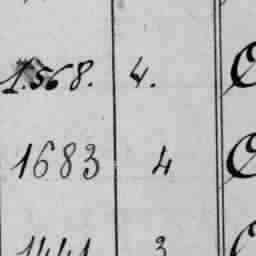 1.568. 4.
1683 4
1441 3